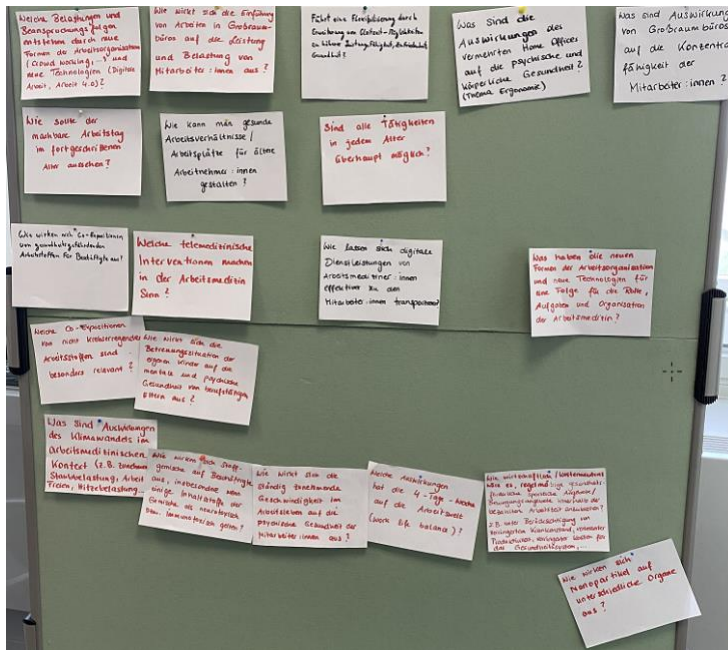 Welche Belastungen und
Beanspruchungsfolgen
entstehen durch neue
Formen der Arbeitsorganisation
(Crowd working,...) und
neue Technologien (Digitale
Arbeit, Arbeit 4.0)?
Wie wirkt sich die Einführung
von Arbeiten in Großraum-
büros auf die Leistung
und Belastung von
Mitarbeiter:innen aus?
Führt eine Flexibilisierung durch
Erweiterung von
zu höherer
Gesundheit?
Was sind die
Auswirkungen des
vermehrten Home Offices
auf die psychische und
körperliche Gesundheit?
(Thema Ergonomie)
Was sind Auswirkungen
von Großraumbüros
auf die Konzentra
fähigkeit der
Mitarbeiter:innen?
Wie sollte der
machbare Arbeitstag
im fortgeschrittenen
Alter aussehen?
Wie kann man gesunde
Arbeitsverhältnisse/
Arbeitsplätze für ältere
Arbeitnehmer:innen
gestalten?
Sind alle Tätigkeiten
in jedem Alter
überhaupt möglich?
Wie wirken sich Co-Expositionen
von gesundheitsgefährdenden
Arbeitsstoffen für Beschäftigte aus?
Welche telemedizinische
Interventionen machen
in der Arbeitsmedizin
Sinn?
Wie lassen sich digitale
Dienstleistungen von
Arbeitsmediziner:innen
effektiver zu den
Mitarbeiter:innen transportieren?
Was haben die neuen
Formen der Arbeitsorganisation
und neue Technologien für
eine Folge für die Rolle,
Aufgaben und Organisation
der Arbeitsmedizin?
Welche Co-Expositionen
von nicht krebserregenden
Arbeitsstoffen sind
besonders relevant?
Wie wirkt sich die
Betreuungssituation der
eigenen Kinder auf die
mentale und psychische
Gesundheit von berufstätigen
Eltern aus?
Was sind Auswirkungen
des Klimawandels im
arbeitsmedizinischen
Kontext (z.B. zunehmende
Staubbelastung, Arbeit
Freien, Hitzebelastung...
Wie wirken sich Stoff-
gemische auf Beschäftigte
aus, insbesondere wenn
einige Inhaltsstoffe der
Gemische als
bzw. gelten?
Wie wirkt sich die
ständig zunehmende
Geschwindigkeit im
Arbeitsleben auf die
psychische Gesundheit der
Mitarbeiter:innen aus?
Welche Auswirkungen
hat die 4-Tage-Woche
auf die Arbeitswelt
(work life balance)?
Wie wirtschaftlich/
wäre es, regelmäßige gesundheits-
sportliche Angebote/
Bewegungsangebote innerhalb der
Arbeitszeit anzubieten?
z.B. unter Berücksichtigung von
verringertem Krankenstand, vermehrter
Produktivität, verringerter Kosten für
das Gesundheitssystem,...
Wie wirken sich
Nanopartikel auf
unterschiedliche Organe
aus?